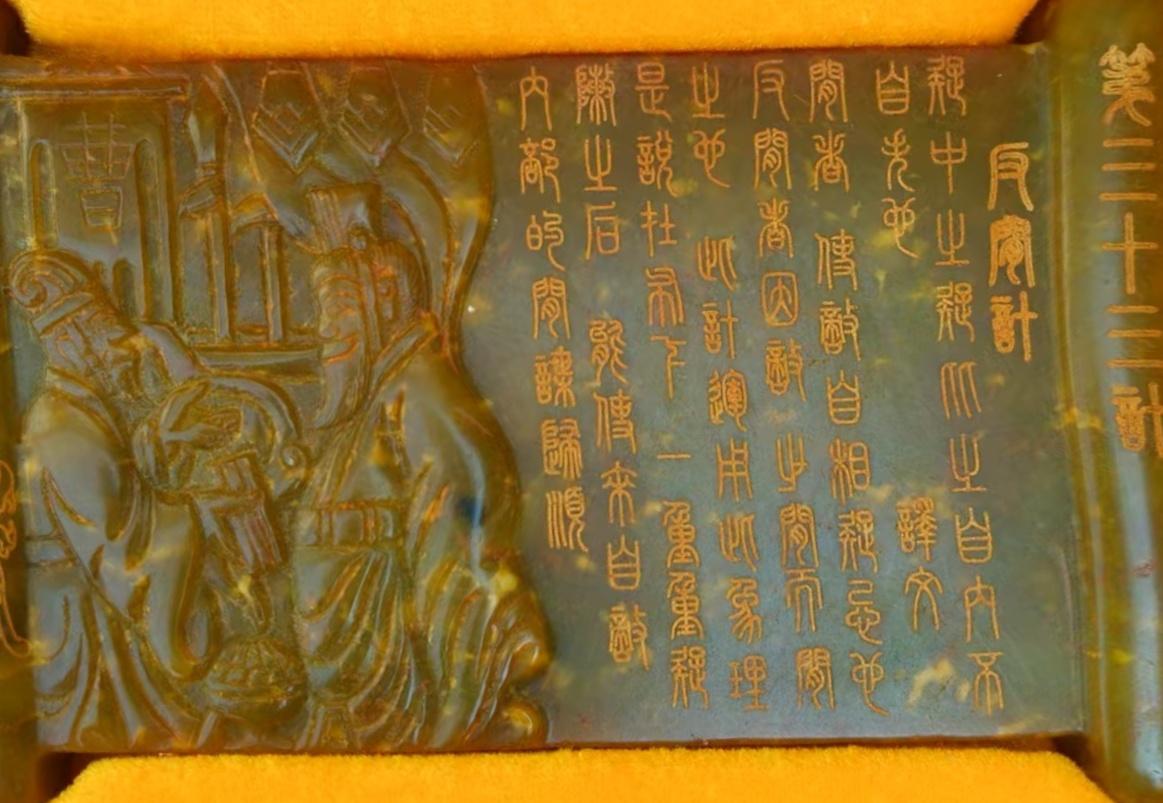 第三十三計
反間計
疑中之疑比之自内不
自失也 譯文
間者 使敵自相疑忌也
反間者因敵之間而間
之也 此計運用此象理
是說在布下一重重疑
陣之后 能使來自敵
内部的間諜歸順
曹